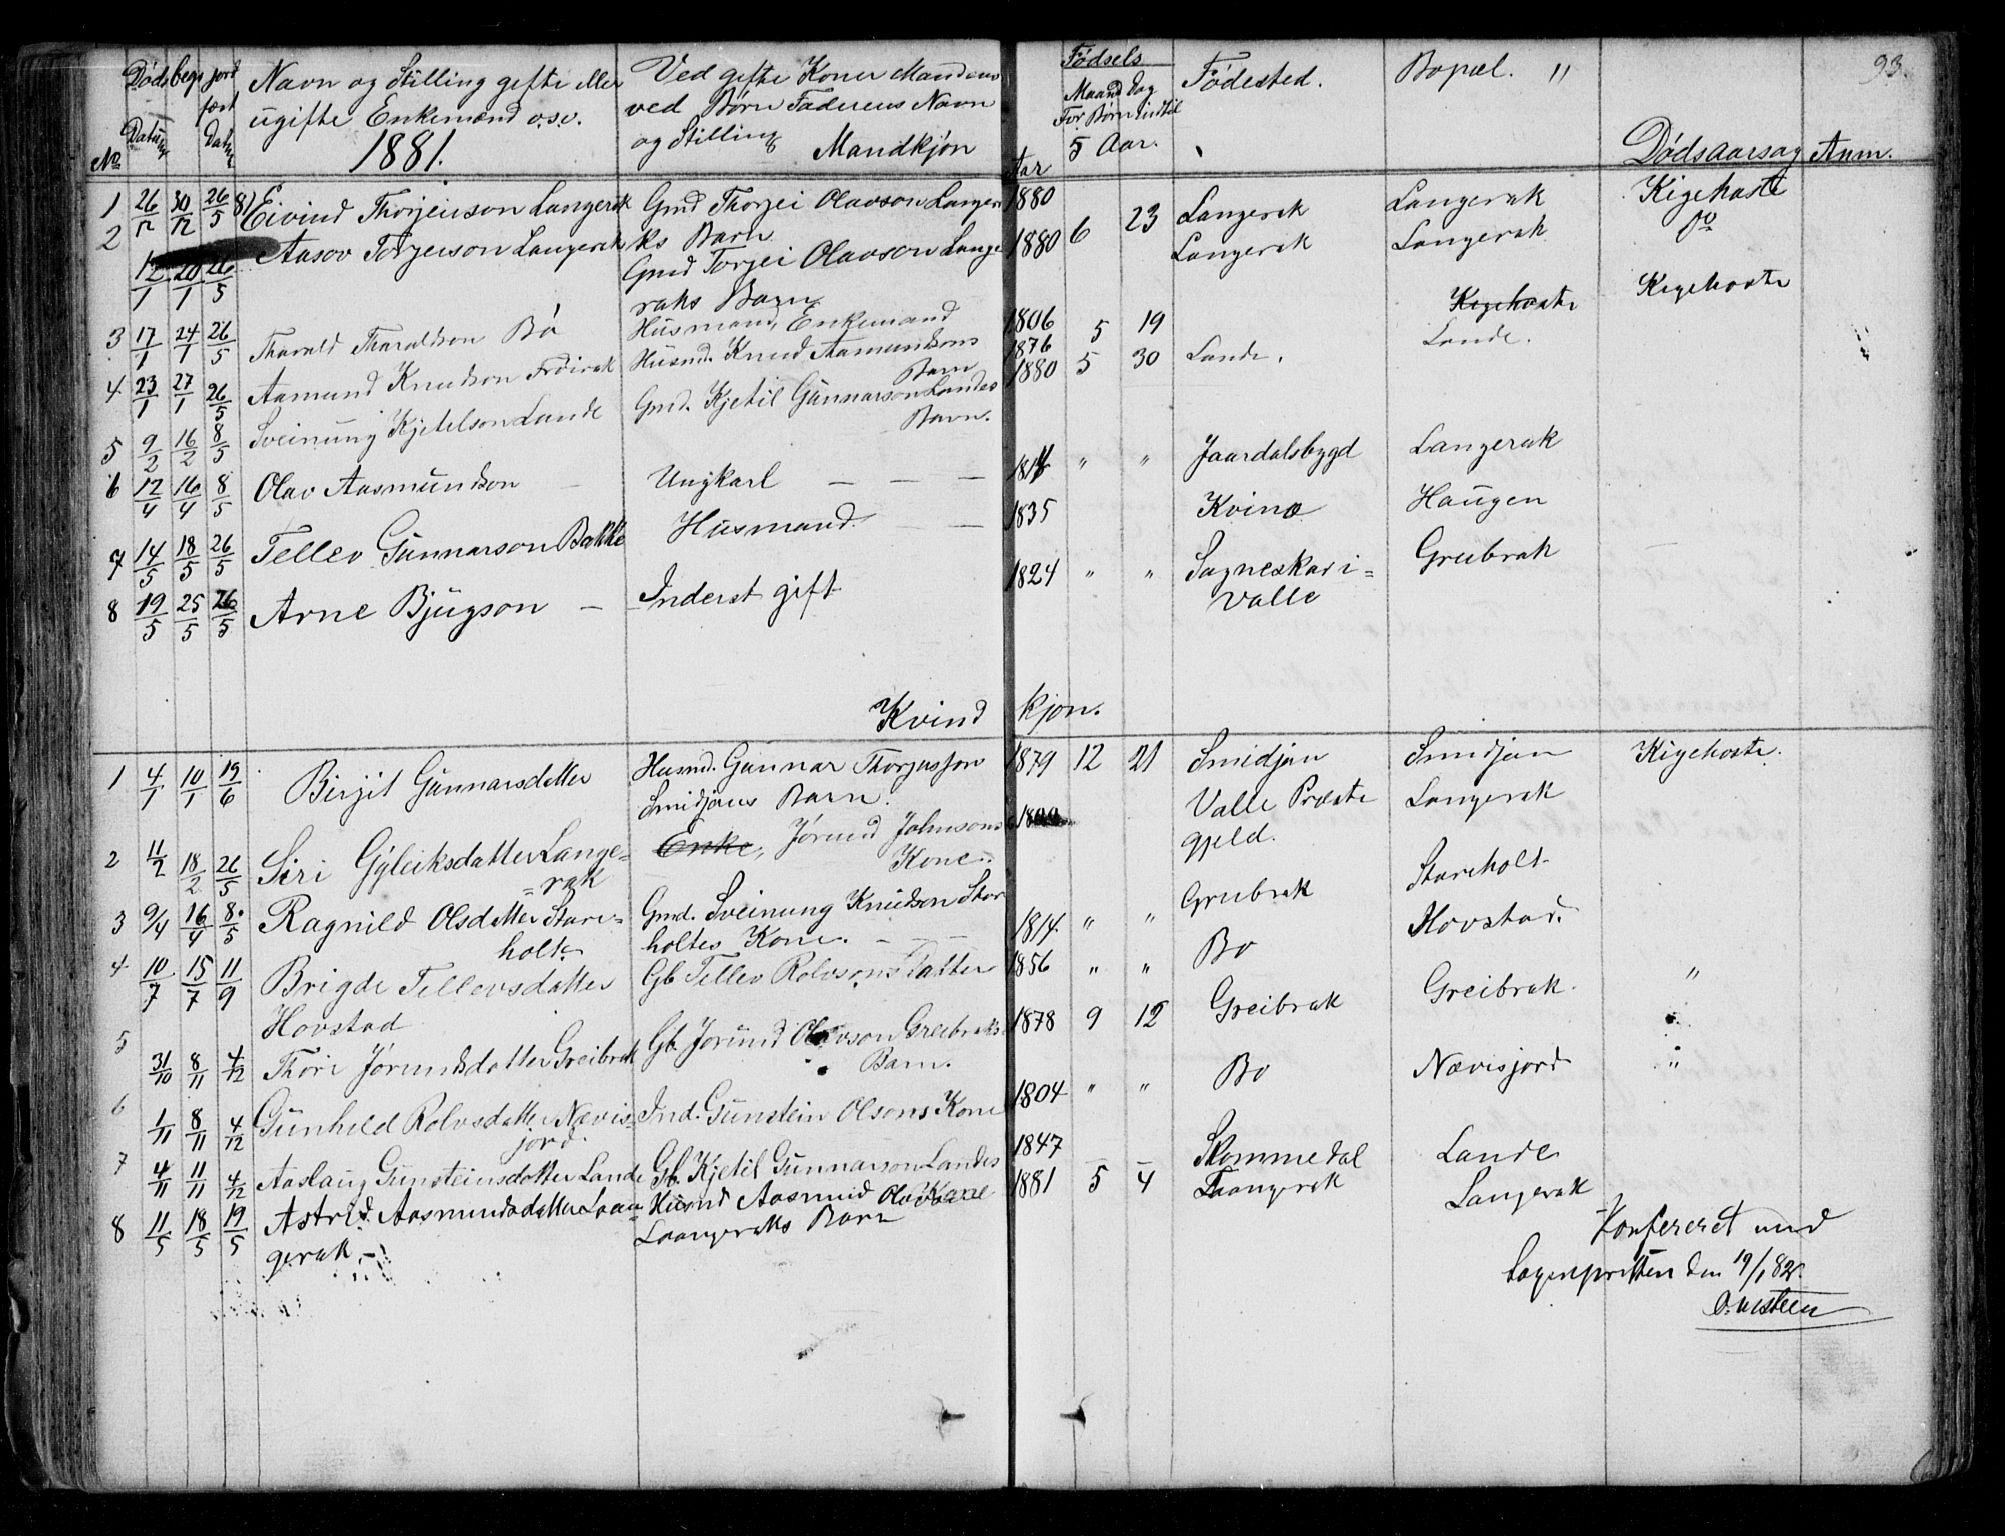 93.
Døds begr jord
fæst
Datum Datum
No
Navn og Stilling gifte eller
ugifte Enkemænd o.s.v.
1881.
Ved gifte Koner Mandens
ved Børn Faderens Navn
og Stilling
Mandkjøn
Aar
Fødsels
Maaned Dag
For Børn indtil
5 Aar.
Fødested.
Bopæl. "
Dødsaarsag
Anm.
1 26/12 30/12 26/5 81 Eivind Thorjeuson Langerak Gmd Thorjei Olavson Langer 1880 Langerak Langerak Kigehoste
ks Barn 6 23
2 12/1 20/1 26/5 Aasov Torjeuson Langerak Gmd Torjei Olavson Lange 1880 Langerak Langerak do
raks Barn
3 17/1 24/1 26/5 Tharald Tharaldson Bö Husmand, Enkemand 1806 5 19 Kigehoste Kigehoste
4 23/1 27/1 26/5 Aamund Knudson Fröirak Husmd. Knud Aamundsons 1876
Barn
5 9/2 16/2 8/5 Sveinung Kjetelson Lande Gmd. Kjetil Gunnarson Landes 1880 5 30 Lande. Lande.
Barn.
6 12/4 16/4 8/5 Olav Aasmundson Ungkarl — — — 1814 " " Jaardalsbygd Langerak
7 14/5 18/5 26/5 Tellev Gunnarson Bakke Husmand — — 1835 Kvina Haugen
8 19/5 25/5 26/5 Arne Bjugson — Inderst gift 1824 " " Sagneskar i= Greibrak
Valle
Kvind kjøn.
1 4/1 10/1 19/6 Birgit Gunnarsdatter Husmd. Gunnar Thorjusson 1879 12 21 Smidjan Smidjan Kigehoste.
Smidjans Barn.
2 11/2 18/2 26/5 Siri Gyleiksdatter Lange= Enke, Jörund Johnsons 1800 Valle Præste Langerak
=rak Kone. gjeld.
3 9/4 16/4 8/5 Ragnild Olsdatter Stare= Gmd. Sveinung Knudson Star 1814 " " Grubrak Stareholt
holt. holtes Kone. — —
4 10/7 15/7 11/9 Brigde Tellevsdatter Gb Tellev Rolvsons Datter 1856 " " Bö Hovstad.
Hovstad
5 31/10 8/11 4/12 Thöre Jörundsdatter Greibrak Gb. Jörund Olavson Greibraks 1878 9 12 Greibrak Greibrak. "
Barn.
6 1/11 8/11 4/12 Gunhild Rolvsdatter Nævis= Ind. Gunstein Olsons Kone 1804 " " Bö Nævisjord "
jord.
7 4/11 11/11 4/12 Aaslaug Gunsteinsdatter Lande Gb. Kjetil Gunnarson Landes 1847 — — Skommedal Lande
Kone
8 11/5 18/5 19/5 Astrid Aasmundsdatter Laan= Husmd Aasmund Olavson 1881 5 4 Laangerak Langerak
gerak — Laangeraks Barn
Konfereret med
Sognepristen den 19/1 82.